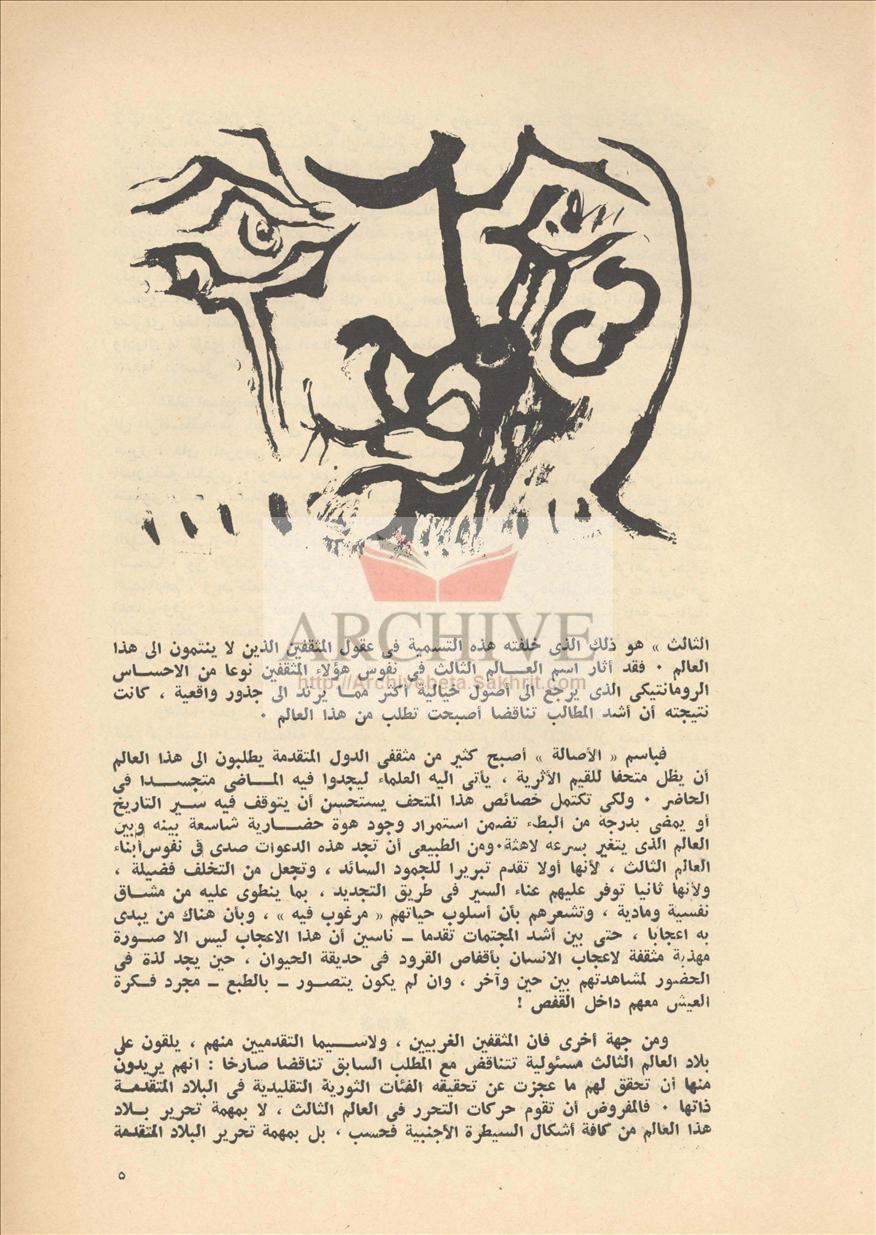 ARCHIVE
http://Archivebeta.Sakhrit.com
الثالث » هو ذلك الذى خلفته هذه التسمية فى عقول المثقفين الذين لا ينتمون الى هذا
العالم ٠ فقد أثار اسم العـــالم الثالث فى نفوس هؤلاء المثقفين نوعا من الاحساس
الرومانتيكى الذى يرجع الى أصول خيالية أكثر ممـا يرتد الى جذور واقعية ، كانت
نتيجته أن أشد المطالب تناقضا أصبحت تطلب من هذا العالم ٠
فباسم « الأصالة » أصبح كثير من مثقفى الدول المتقدمة يطلبون الى هذا العالم
أن يظل متحفا للقيم الأثرية ، يأتى اليه العلماء ليجدوا فيه المـــاضى متجســـدا فى
الحاضر ٠ ولكى تكتمل خصائص هذا المتحف يستحسن أن يتوقف فيه ســير التاريخ
أو يمضى بدرجة من البطء تضمن استمرار وجود هوة حضـــارية شاسعة بينه وبين
العالم الذى يتغير بسرعه لاهثة٠ومن الطبيعى أن تجد هذه الدعوات صدى فى نفوس أبناء
العالم الثالث ، لأنها أولا تقدم تبريرا للجمود السائد ، وتجعل من التخلف فضيلة ،
ولأنها ثانيا توفر عليهم عناء السير فى طريق التجديد ، بما ينطوى عليه من مشـــاق
نفسية ومادية ، وتشعرهم بأن أسلوب حياتهم « مرغوب فيه » ، وبأن هناك من يبدى
به اعجابا ، حتى بين أشد المجتمات تقدما ــ ناسين أن هذا الاعجاب ليس الا صــورة
مهذبة مثقفة لاعجاب الانسان بأقفاص القرود فى حديقة الحيوان ، حين يجد لذة فى
الحضور لمشاهدتهم بين حين وآخر ، وان لم يكون يتصـور ــ بالطبع ــ مجرد فـــكرة
العيش معهم داخل القفص !
ومن جهة أخرى فان المثقفين الغربيين ، ولاســـيما التقدميين منهم ، يلقون على
بلاد العالم الثالث مسئولية تتناقض مع المطلب السابق تناقضا صارخا : انهم يريدون
منها أن تحقق لهم ما عجزت عن تحقيقه الفئات الثورية التقليدية فى البلاد المتقدمـة
ذاتها ٠ فالمفروض أن تقوم حركات التحرر فى العالم الثالث ، لا بمهمة تحرير بــلاد
هذا العالم من كافة أشكال السيطرة الأجنبية فحسب ، بل بمهمة تحرير البلاد المتقدمة
٥